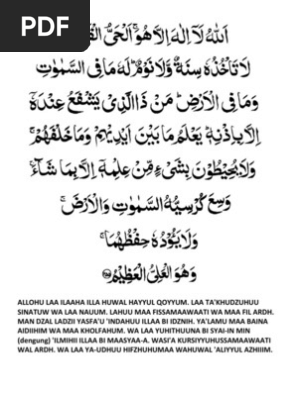 PDF
اَللّٰهُ لَآ اِلٰهَ اِلَّا هُوَۚ اَلْحَيُّ
لَا تَأْخُذُهٗ سِنَةٌ وَّلَا نَوْمٌ ؕ لَهٗ مَا فِى السَّمٰوٰتِ
وَمَا فِى الْاَرْضِ ؕ مَنْ ذَا الَّذِيْ يَشْفَعُ عِنْدَهٗٓ
اِلَّا بِاِذْنِهٖ ؕ يَعْلَمُ مَا بَيْنَ اَيْدِيْهِمْ وَمَا خَلْفَهُمْۚ
وَلَا يُحِيْطُوْنَ بِشَيْءٍ مِّنْ عِلْمِهٖٓ اِلَّا بِمَا شَآءَۚ
وَسِعَ كُرْسِيُّهُ السَّمٰوٰتِ وَالْاَرْضَۚ
وَلَا يَـُٔوْدُهٗ حِفْظُهُمَاۚ
وَهُوَ الْعَلِيُّ الْعَظِيْمُ
ALLOHU LAA ILAAHA ILLA HUWAL HAYYUL QOYYUM. LAA TA'KHUDZUHUU
SINATUW WA LAA NAUUM. LAHUU MAA FISSAMAAWAATI WA MAA FIL ARDH.
MAN DZAL LADZII YASFA'U 'INDAHUU ILLAA BI IDZNIH. YA'LAMU MAA BAINA
AIDIIHIM WA MAA KHOLFAHUM. WA LAA YUHITHUUNA BI SYAI-IN MIN
(dengung) 'ILMIHII ILLAA BI MAASYAA-A. WASI'A KURSIYYUHUSSAMAAWAATI
WAL ARDH. WA LAA YA-UDHUU HIFZHUHUMAA WAHUWAL 'ALIYYUL AZHIIIM.